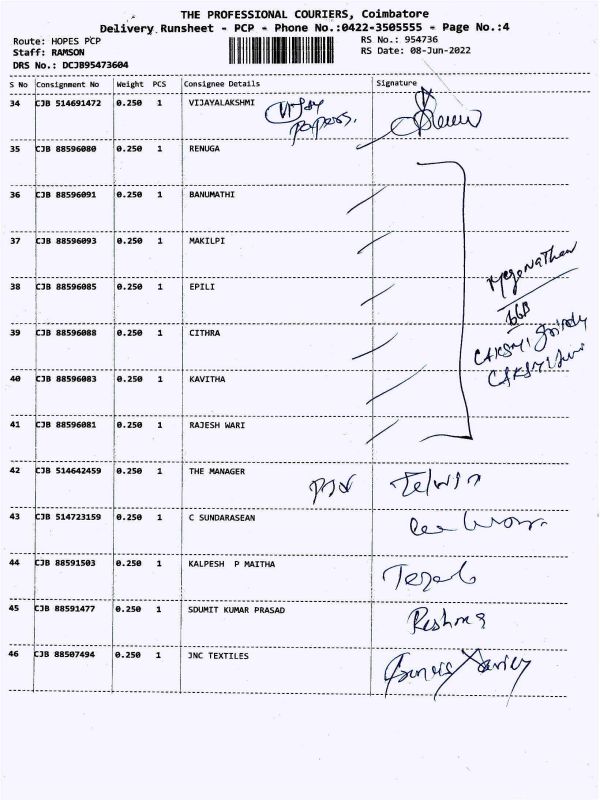 THE PROFESSIONAL COURIERS, Coimbatore
Delivery Runsheet - PCP - Phone No.:0422-3505555 - Page No.:4
Route: HOPES PCP
RS No.: 954736
Staff: RAMSON
RS Date: 08-Jun-2022
DRS No.: DCJB95473604
S No Consignment No Weight PCS Consignee Details Signature
34 CJB 514691472 0.250 1 VIJAYALAKSHMI
papers.
35 CJB 88596080 0.250 1 RENUGA
36 CJB 88596091 0.250 1 BANUMATHI
37 CJB 88596093 0.250 1 MAKILPI
38 CJB 88596085 0.250 1 EPILI
Megonathan
39 CJB 88596088 0.250 1 CITHRA
40 CJB 88596083 0.250 1 KAVITHA
41 CJB 88596081 0.250 1 RAJESH WARI
42 CJB 514642459 0.250 1 THE MANAGER
43 CJB 514723159 0.250 1 C SUNDARASEAN
44 CJB 88591503 0.250 1 KALPESH P MAITHA
45 CJB 88591477 0.250 1 SDUMIT KUMAR PRASAD Reshma
46 CJB 88507494 0.250 1 JNC TEXTILES Francis Xavier